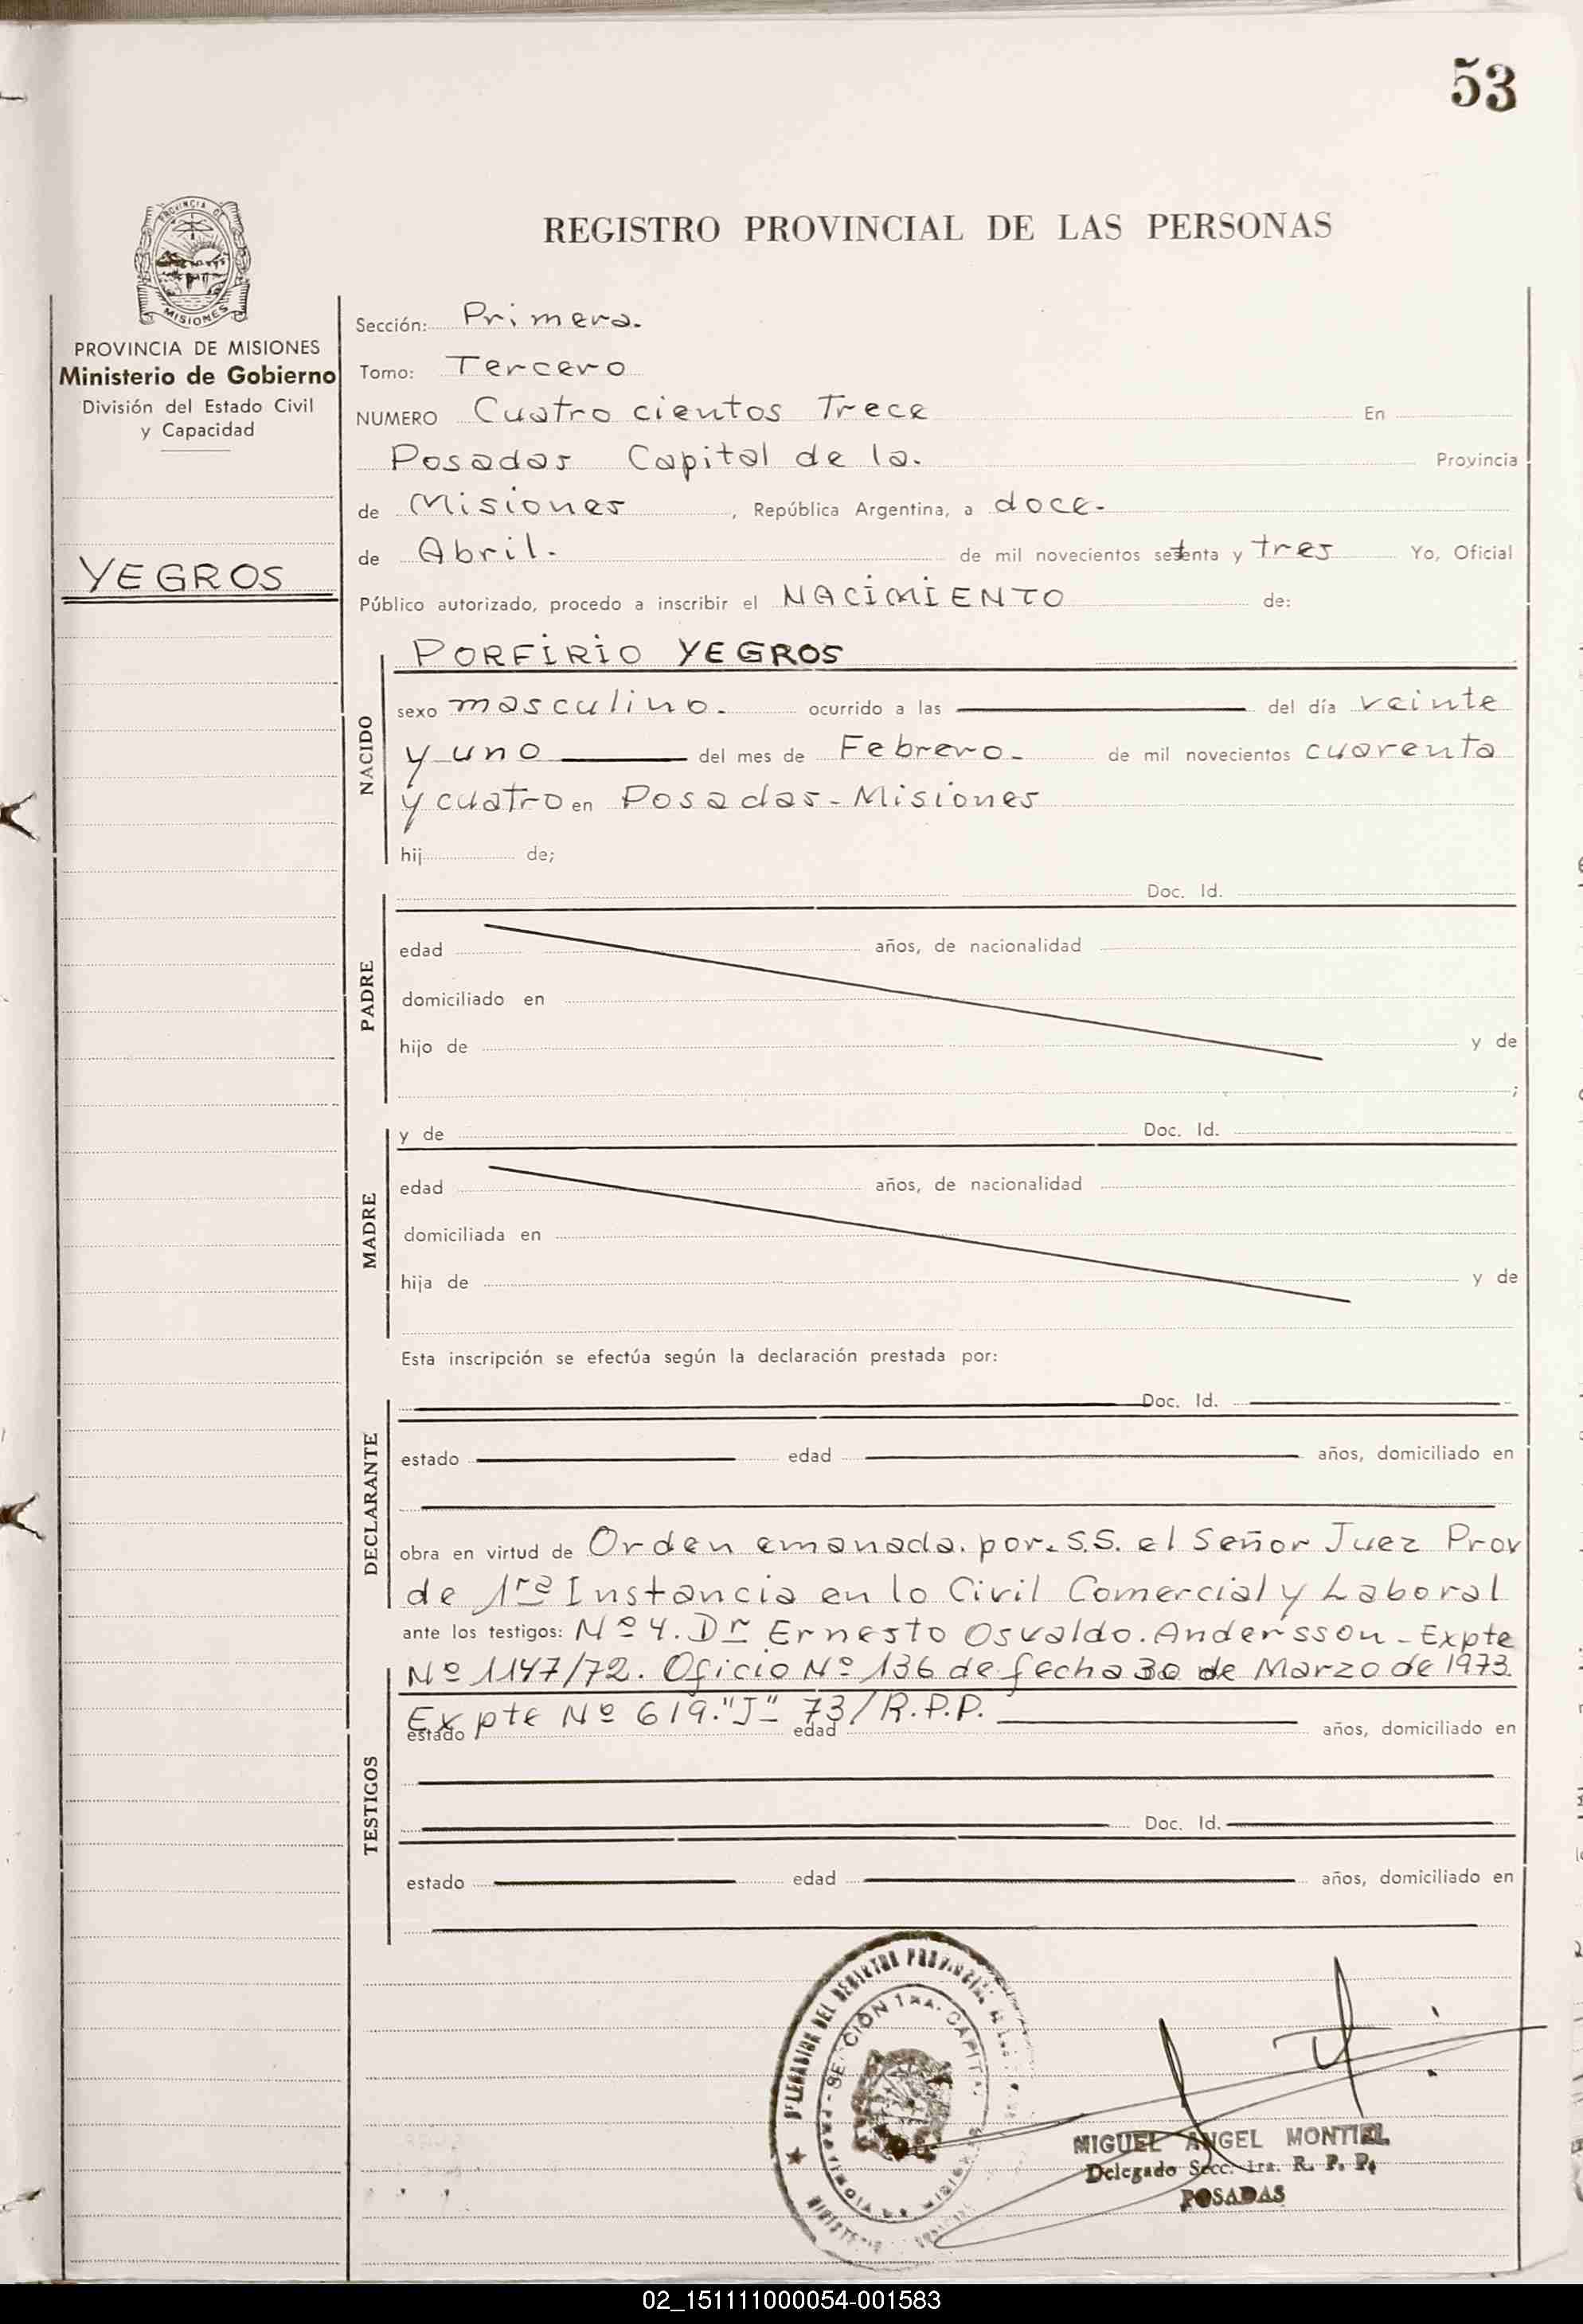 53
REGISTRO PROVINCIAL DE LAS PERSONAS
PROVINCIA DE
MISIONES
PROVINCIA DE MISIONES
Ministerio de Gobierno
División del Estado Civil
y Capacidad
YEGROS
Sección: Primera.
Tomo: Tercero
NUMERO Cuatro cientos Trece En
Posadas Capital de la. Provincia
de Misiones, República Argentina, a doce.
de Abril. de mil novecientos setenta y tres Yo, Oficial
Público autorizado, procedo a inscribir el NACIMIENTO de:
NACIDO
PORFIRIO YEGROS
sexo masculino. ocurrido a las del día veinte
y uno del mes de Febrero. de mil novecientos cuarenta
y cuatro en Posadas - Misiones
hij de;
PADRE
Doc. Id.
edad años, de nacionalidad
domiciliado en
hijo de y de
;
MADRE
y de Doc. Id.
edad años, de nacionalidad
domiciliada en
hija de y de
Esta inscripción se efectúa según la declaración prestada por:
DECLARANTE
Doc. Id.
estado edad años, domiciliado en
obra en virtud de Orden emanada. por. S.S. el Señor Juez Prov
de 1ra Instancia en lo Civil Comercial y Laboral
ante los testigos: Nº 4. Dr Ernesto Osvaldo. Andersson - Expte
Nº 1147/72. Oficio Nº 136 de fecha 30 de Marzo de 1973.
TESTIGOS
Expte Nº 619."J" 73/R.P.P.
estado edad años, domiciliado en
Doc. Id.
estado edad años, domiciliado en
DELEGACION DEL REGISTRO PROVINCIAL
SECCIÓN 1ra. CAPITAL
MIGUEL ANGEL MONTIEL
Delegado Secc. 1ra. R. P. P.
POSADAS
02_151111000054-001583